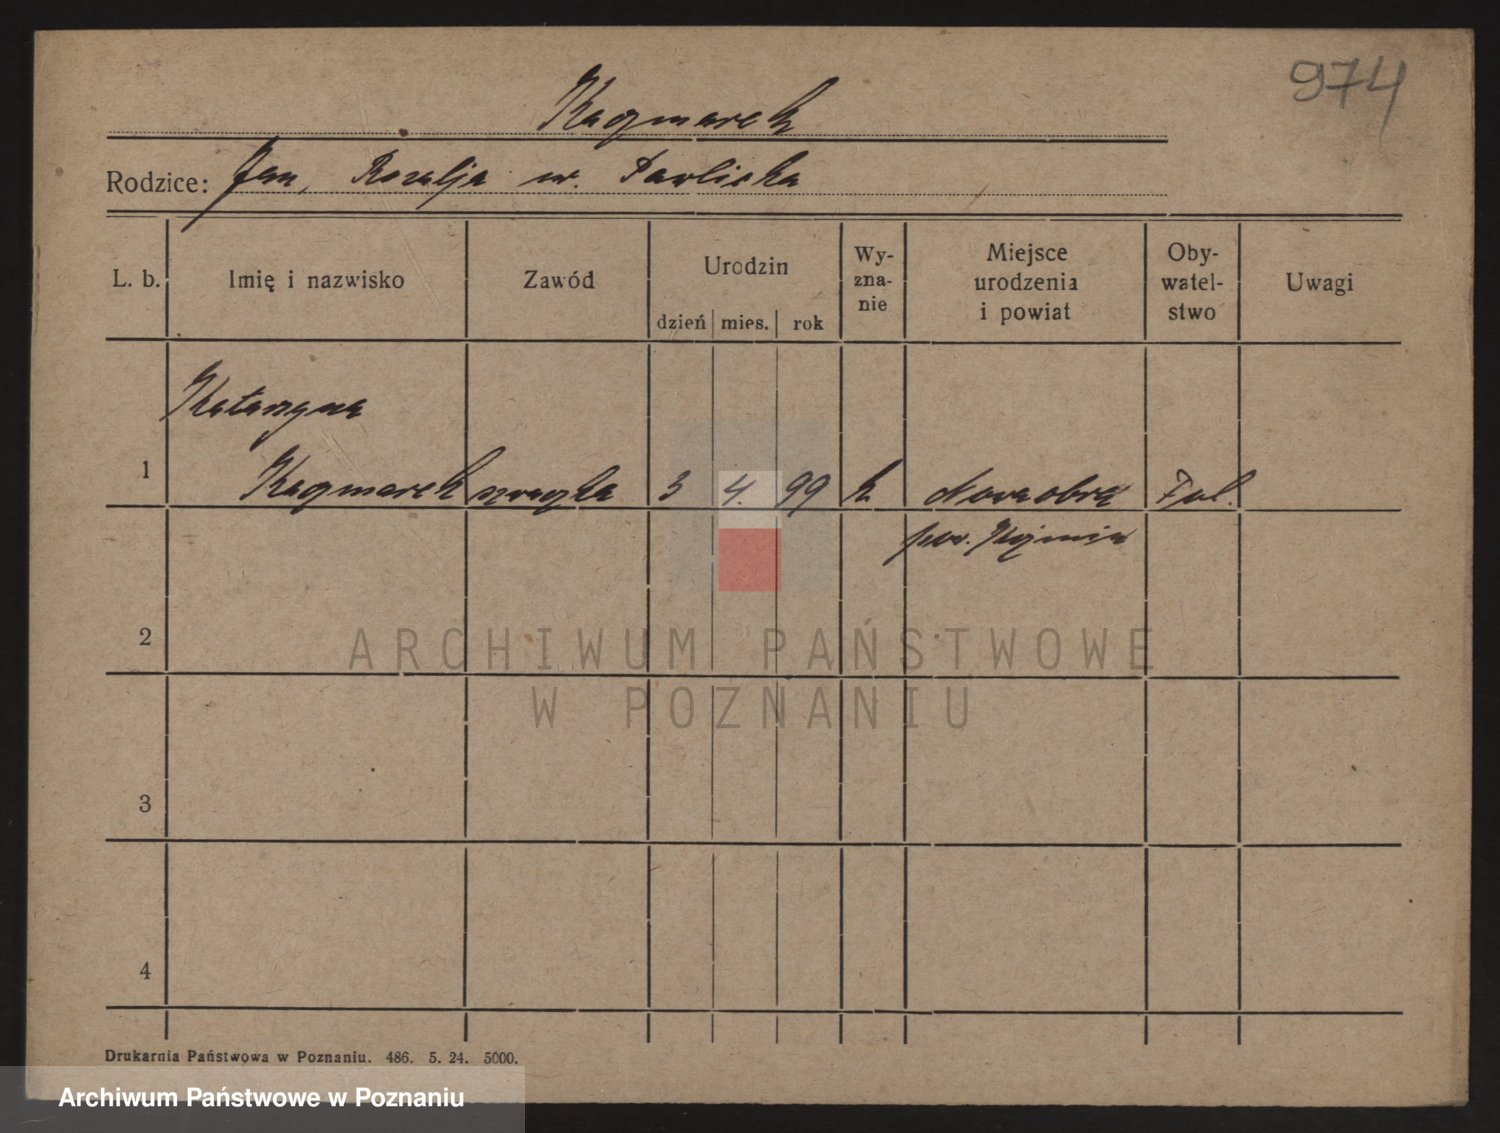 974
Kaczmarek
Rodzice: Jan, Rozalja ur. Pawlicka
L. b.
Imię i nazwisko
Zawód
Urodzin
dzień
mies.
rok
Wy-
zna-
nie
Miejsce
urodzenia
i powiat
Oby-
watel-
stwo
Uwagi
Katarzyna
1 Kaczmarek szwaczka 3 4. 99 k. Nowaobra Pol.
pow. Koźmin
2
3
4
ARCHIWUM PAŃSTWOWE
W POZNANIU
Drukarnia Państwowa w Poznaniu. 486. 5. 24. 5000.
Archiwum Państwowe w Poznaniu